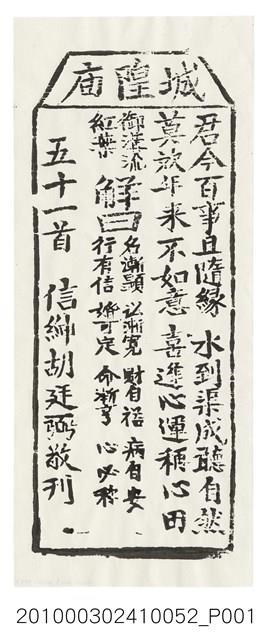 城隍庙
君今百事且隨緣 水到渠成聽自然
莫放年来不如意 喜逢心運称心田
御溝流紅葉
解曰
名漸顯 訟漸寬 財自裕 病自安
行有信 婚可定 命漸亨 心必称
五十一首 信紳胡廷弼敬刊
201000302410052_P001